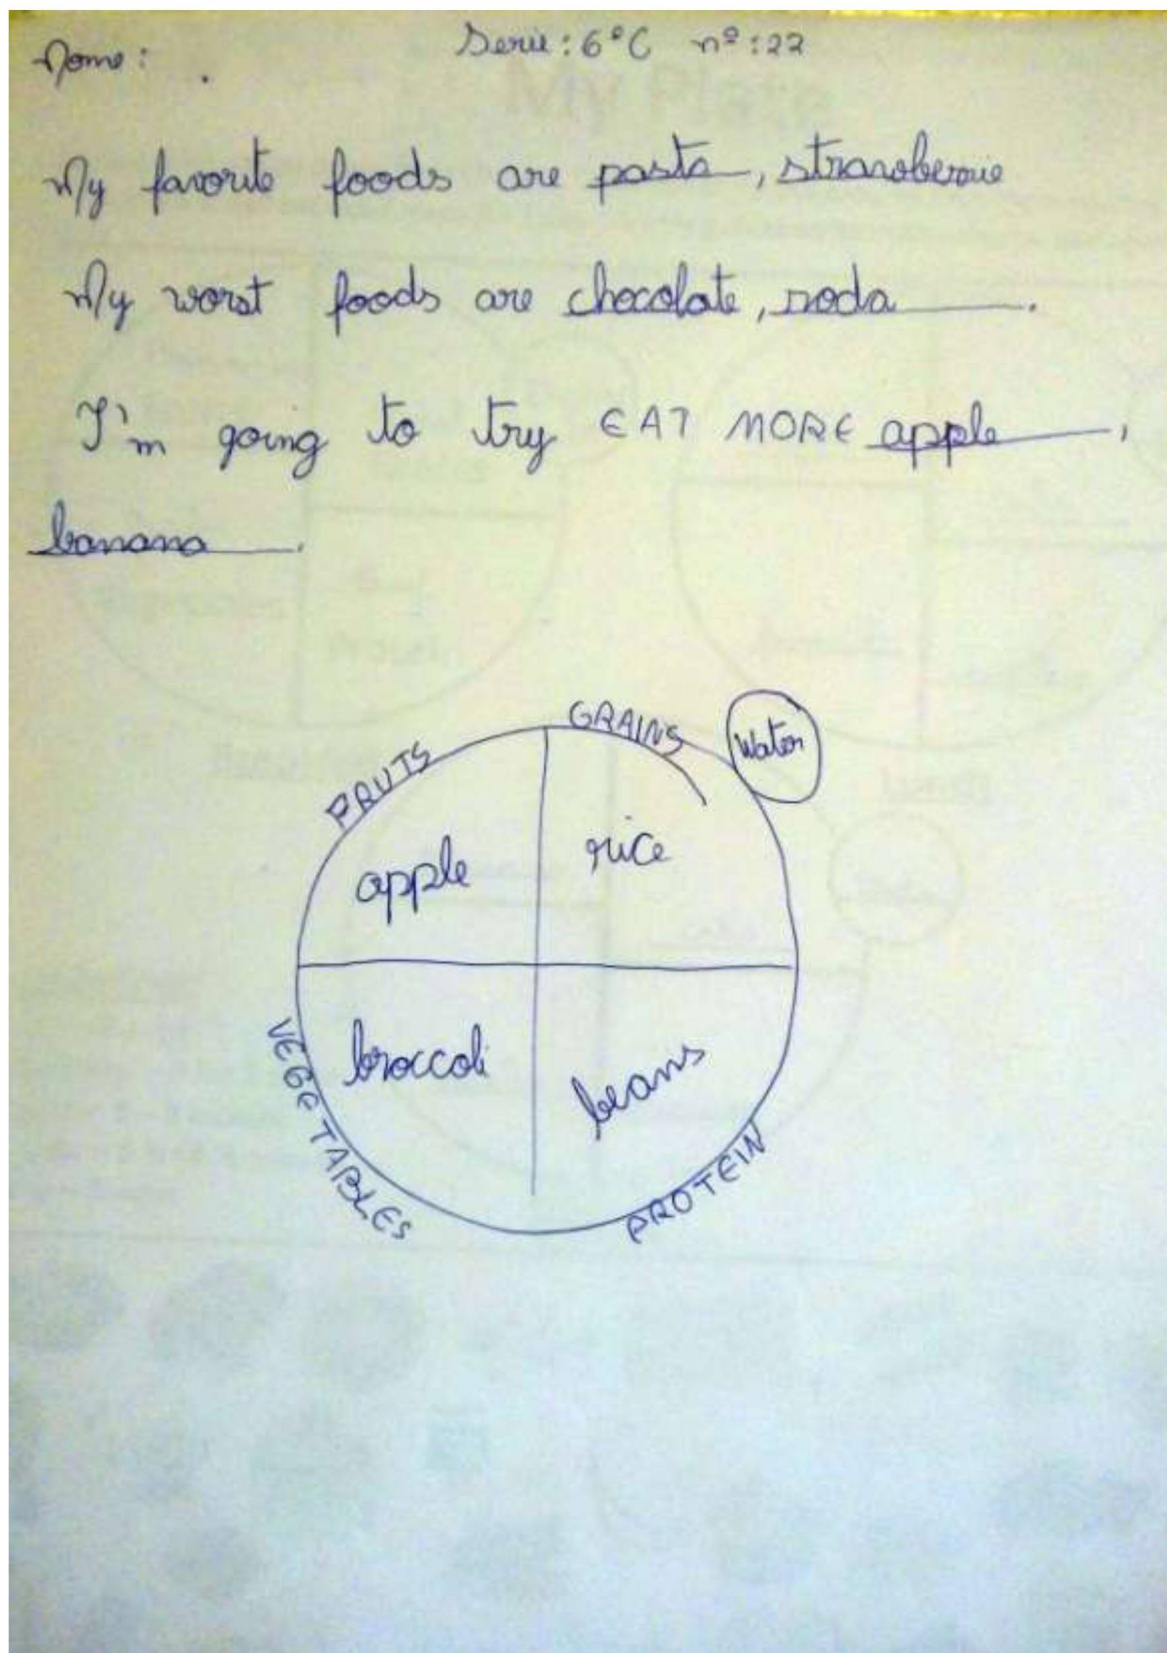 Nome: . Serie: 6°C nº: 22
My favorite foods are pasta, strawberrie
My worst foods are chocolate, soda.
I'm going to try EAT MORE apple,
banana.
GRAINS
Water
FRUTS
apple
rice
broccoli
beans
VEGETABLES
PROTEIN
My Plate